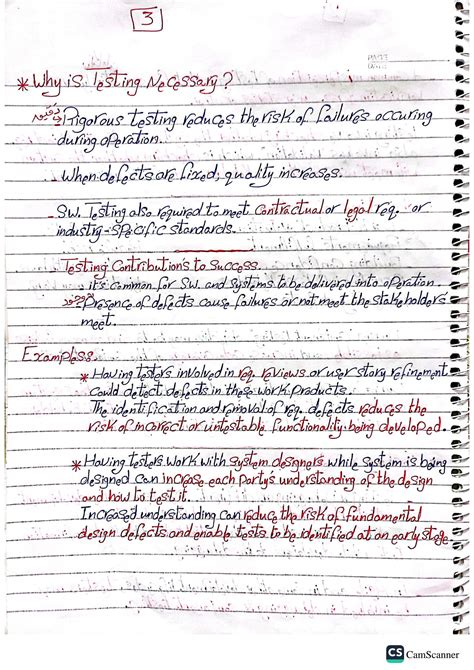 3
* Why is Testing Necessary?
Rigorous testing reduces the risk of failures occuring
during operation.
- When defects are fixed, quality increases.
- SW. Testing also required to meet Contractual or legal req. or
industry-specific standards.
Testing Contributions to Success
- it's common for SW. and Systems to be delivered into operation.
Presence of defects cause failures or not meet the stakeholders
meet.
Exampless.
* Having testers involved in req. reviews or user story refinement
Could detect defects in these work products.
The identification and removal of req. defects reduces the
risk of incorrect or untestable functionality being developed.
* Having testers work with system designers while system is being
designed can increase each partys understanding of the design
and how to test it.
Increased understanding can reduce the risk of fundamental
design defects and enable tests to be identified at an early stage
CS CamScanner